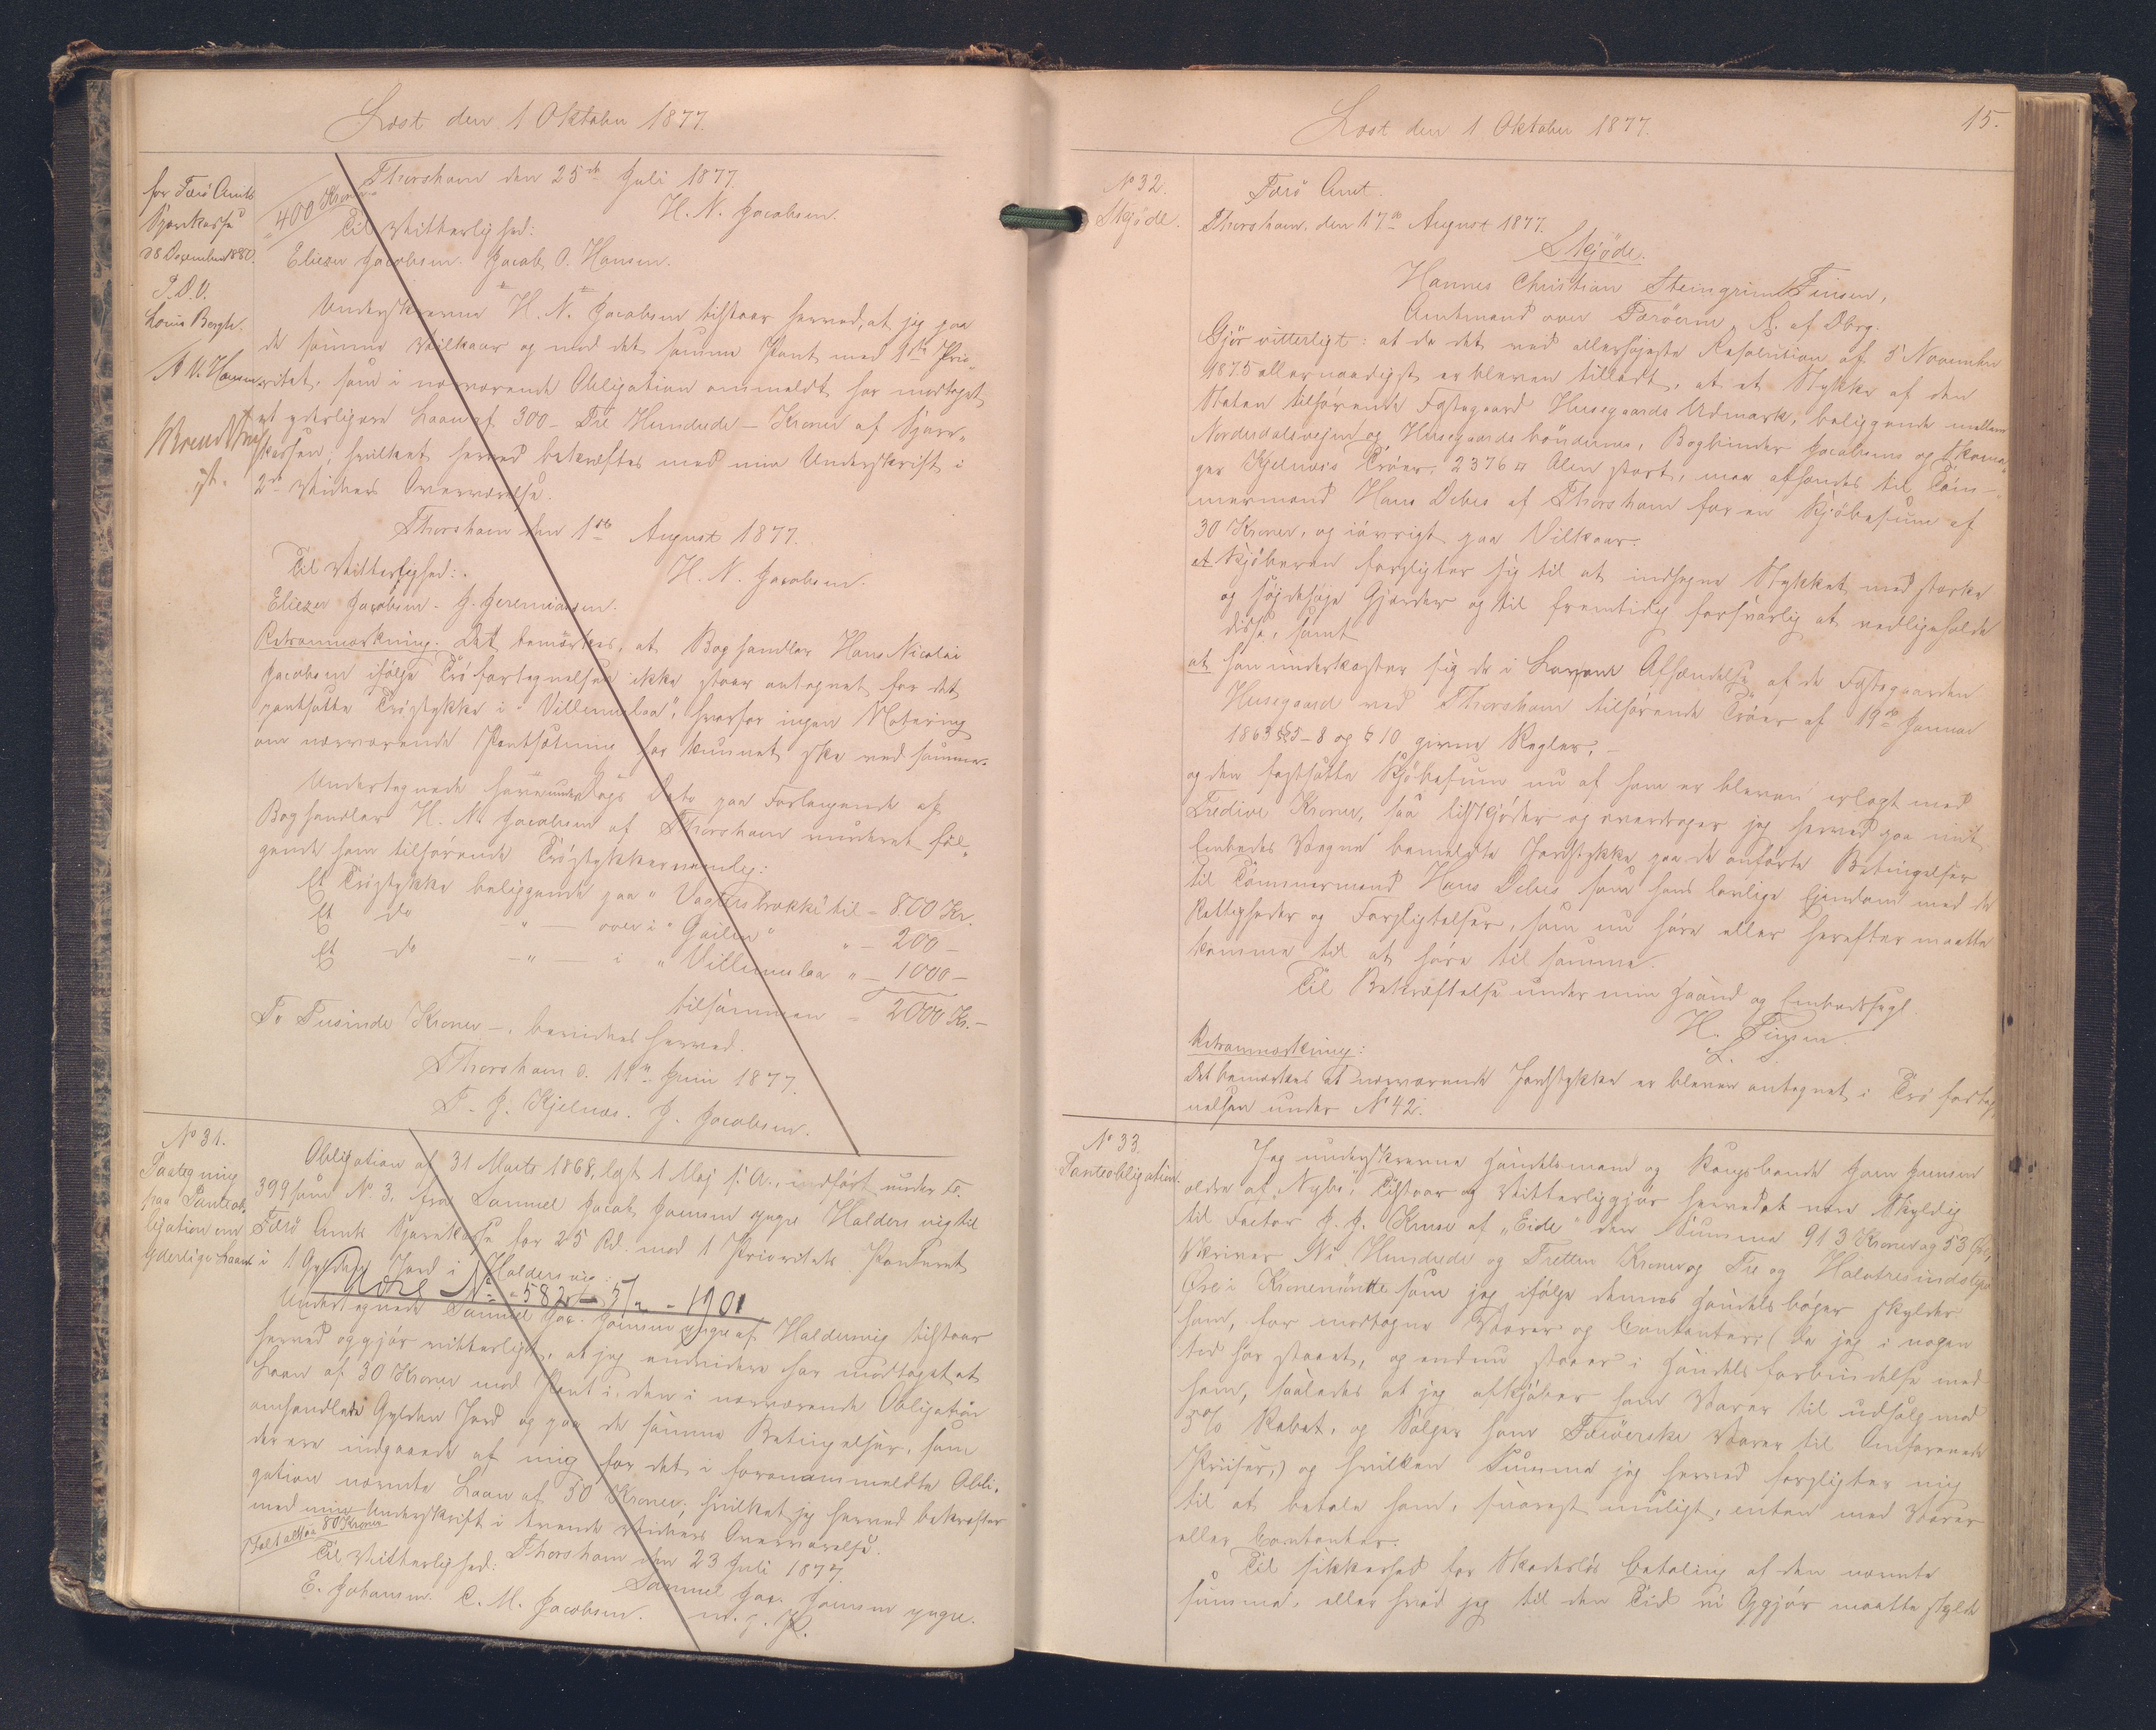 Læst den 1 Oktober 1877.
for Færö Amts
Sparekasse
28 December 1880.
P. D. V.
Louis Bergh.
400 Kroner
Thorshavn den 25de Juli 1877.
H. N. Jacobsen.
Til Vitterlighed:
Eliezer Jacobsen. Jacob O. Hansen.
Underskrevne H. N. Jacobsen tilstaar herved, at jeg paa
de samme Vilkaar og mod det samme Pant med 1ste Prio-
ritet, som i nærværende Obligation ommeldt har modtaget
et yderligere Laan af 300 - Tre Hundrede - Kroner af Spare-
kassen, hvilket herved bekræftes med min Underskrift i
2de Vidners Overværelse.
Thorshavn den 1ste August 1877.
Til Vitterlighed:
H. N. Jacobsen.
Eliezer Jacobsen. J. Jeremiassen.
Retsanmærkning: Det bemærkes, at Boghandler Hans Nicolai
Jacobsen ifølge Tröfortegnelsen ikke staar antegnet for det
pantsatte Tröstykke i "Villumsloa", hvorfor ingen Notering
om nærværende Pantsætning har kunnet ske ved samme.
Undertegnede have under Dags Dato paa Forlangende af
Boghandler H. N. Jacobsen af Thorshavn vurderet føl-
gende ham tilhørende Tröstykker nemlig:
Et Tröstykke beliggende paa " til - 800 Kr.
Et do - " - over i "Geilen" " - 200 -
Et do - " - i "Villumsloa " - 1000 -
tilsammen - 2000 Kr. -
To Tusinde Kroner -, bevidnes herved.
Thorshavn d. 11te Juni 1877.
F. J. Kjelnæs. J. Jacobsen.
No 31.
Paategning
paa Panteob-
ligation om
yderligere Laan
Obligation af 31 Marts 1868, læst 1 Maj s. A., indført under Fo.
399 som No. 3, fra Samuel Jacob Joensen yngre Haldersvig til
Færö Amts Sparekasse for 25 Rd. mod 1 Prioritets Panteret
i 1 Gylden Jord i Haldersvig:
No - 582 - 5/2 - 1901
Undertegnede Samuel Jac. Joensen yngre af Haldersvig tilstaar
herved og gjör vitterligt, at jeg endvidere har modtaget et
Laan af 30 Kroner mod Pant i den i nærværende Obligation
omhandlede Gylden Jord og paa de samme Betingelser, som
der ere indgaaede af mig for det i foranommeldte Obli-
gation nævnte Laan af 50 Kroner, hvilket jeg herved bekræfter
med min Underskrift i tvende Vidners Overværelse.
Tilsammen 80 Kroner
Thorshavn den 23 Juli 1877.
Til Vitterlighed:
Samuel Jac. Joensen yngre.
E. Johansen. C. M. Jacobsen.
m. f. P.
Læst den 1 Oktober 1877.
15.
No 32.
Skjöde.
Færö Amt.
Thorshavn, den 17de August 1877.
Skjöde.
Hannes Christian Steingrim Finsen,
Amtmand over Færöerne, R. af Dbrg.
Gjör vitterligt: at da det ved allerhöjeste Resolution af 5 November
1875 allernaadigst er bleven tilladt, at et Stykke af den
Staten tilhørende Fæstegaard Husegaards Udmark, beliggende mellem
Norderdalsvejen og Husegaards böndernes, Bogbinder Jacobsens og
Kjelnæs's Tröer, 2376 □ Alen stort, maa afhændes til Töm-
mermand Hans Debes af Thorshavn for en Kjöbesum af
30 Kroner, og iövrigt paa Vilkaar:
at Kjöberen forpligter sig til at indhegne Stykket med stærke
og höjdehöje Gjærder og til fremtidig forsvarlig at vedligeholde
disse, samt
at han underkaster sig de i Loven om Afhændelse af de Fæstegaarden
Husegaard ved Thorshavn tilhørende Tröer af 19de Januar
1863 §§ 5-8 og § 10 givne Regler, -
og den fastsatte Kjöbesum nu af ham er bleven erlagt med
Tredive Kroner, saa tilskjöder og overdrager jeg herved paa mit
Embedes Vegne bemeldte Jordstykke paa de anförte Betingelser
til Tömmermand Hans Debes som hans lovlige Ejendom med de
Rettigheder og Forpligtelser, som nu høre eller herefter maatte
komme til at høre til samme.
Til Bekræftelse under min Haand og Embedssegl.
H. Finsen.
L. S.
Retsanmærkning:
Det bemærkes at nærværende Jordstykke er bleven antegnet i Tröforteg-
nelsen under No 42.
No 33.
Panteobligation.
Jeg underskrevne Handelsmand og Kongsbonde Joen Joensen
ældre af "Nybö", Tilstaar og Vitterliggjör herved at være Skyldig
til Factor J. J. Kruse af "Eide" den Summa 913 Kroner og 53 Öre,
skriver Ni Hundrede og Tretten Kroner og Tre og Halvtredsinds tyve
Öre i Kronemönt som jeg ifølge dennes Handelsbøger skylder
ham, for modtagne Varer og Contanter, (da jeg i nogen
tid har staaet, og endnu staaer i Handelsforbindelse med
ham, saaledes at jeg afkjöber ham Varer til udsalg mod
5% Rabat, og sælger ham Færöerske Varer til
Priser,) og hvilken Summa jeg herved forpligter mig
til at betale ham, snarest muligt, enten med Varer
eller Contanter.
Til sikkerhed for Skadeslös betaling af den nævnte
summa, eller hvad jeg til den Tid vi Opgjör maatte skylde